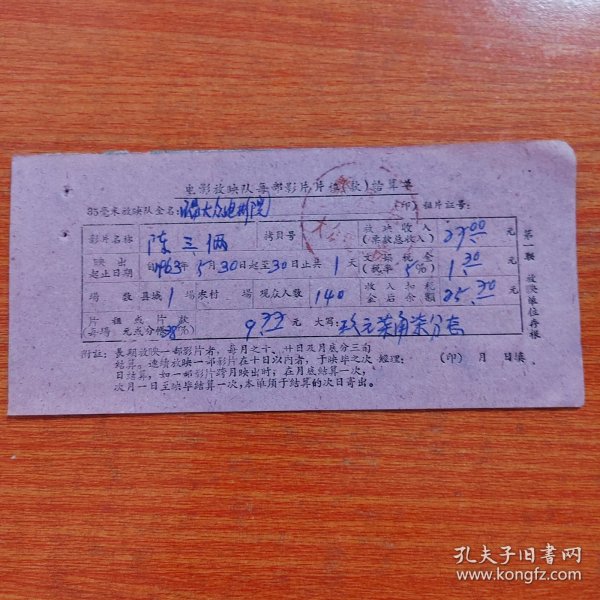 电影放映队每部影片片租(款)结算单
35毫米放映队全名: 大众电影院 (印) 租片证号:
影片名称 陈三两 拷贝号 放映收入(票款总收入) 27.00 元
映出起止日期 自1963年5月30日起至30日止共1天 文娱税金(税率5%) 1.30 元
场数 县城1场农村 场 观众人数 140 收入扣税金后余额 25.70 元
片租或片款(每场 元或分帐38%) 9.77 元 大写: 玖元柒角柒分套
第一联 放映单位存根
附注: 长期放映一部影片者,每月之十、廿日及月底分三旬
结算。连续放映一部影片在十日以内者,于映毕之次 经理: (印) 月 日填
日结算,如一部影片跨月映出时,在月底结算一次,
次月一日至映毕结算一次,本单须于结算的次日寄出。
孔夫子旧书网
www.kongfz.com